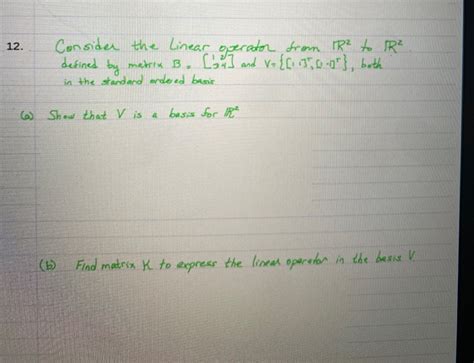 12. Consider the Linear operator from ℝ² to ℝ²
defined by matrix B = [1 2; 3 4] and V = {[1 1]ᵀ, [1 -1]ᵀ}, both
in the standard ordered basis
(a) Show that V is a basis for ℝ²
(b) Find matrix K to express the linear operator in the basis V.